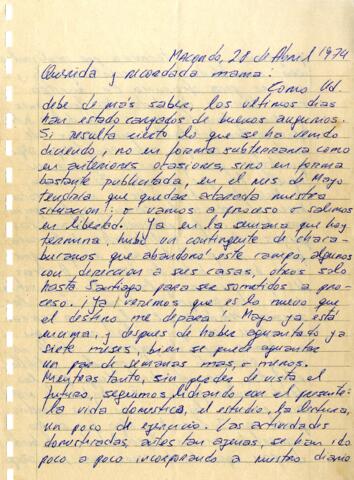 Macondo, 28 de Abril 1974
Querida y recordada mamá:
Como Ud.
debe de más saber, los últimos días
han estado cargados de buenos augurios.
Si resulta cierto lo que se ha venido
diciendo, no en forma subterránea como
en anteriores ocasiones, sino en forma
bastante publicitada, en el mes de Mayo
tendría que quedar aclarada nuestra
situación: o vamos a proceso o salimos
en libertad. Ya en la semana que hoy
termina, hubo un contingente de chaca-
bucanos que abandonó este campo, algunos
con dirección a sus casas, otros solo
hasta Santiago para ser sometidos a pro-
ceso. ¡Ya veremos que es lo nuevo que
el destino me depara! Mayo ya está
encima, y después de haber aguantado ya
siete meses, bien se puede aguantar
un par de semanas más, o menos.
Mientras tanto, sin perder de vista el
futuro, seguimos lidiando con el presente:
la vida doméstica, el estudio, la lectura,
un poco de ejercicio. Las actividades
domésticadas, antes tan ajenas, se han ido
poco a poco incorporando a nuestro diario